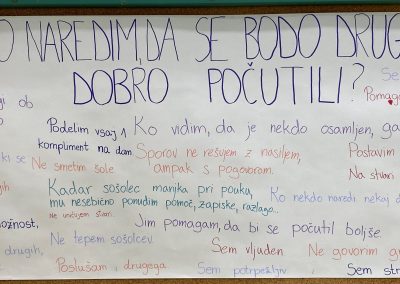 O NAREDIM, DA SE BODO DRUG
DOBRO POČUTILI?
Se
Pomaga
gi ob
Podelim vsaj 1
kompliment na dan
Ko vidim, da je nekdo osamljen, ga
ki se
Ne smetim šole
Sporov ne rešujem z nasiljem,
ampak s pogovorom.
Postavim
Na stvari
Kadar sošolec manjka pri pouku,
mu nesebično ponudim pomoč, zapiske, razlago...
Ko nekdo naredi nekaj d
Ne uničujem stvari.
možnost,
Jim pomagam, da bi se počutil boljše.
drugih,
Ne tepem sošolcev.
Sem vljuden
Ne govorim g
Poslušam drugega.
Sem potrpežljiv
Sem str